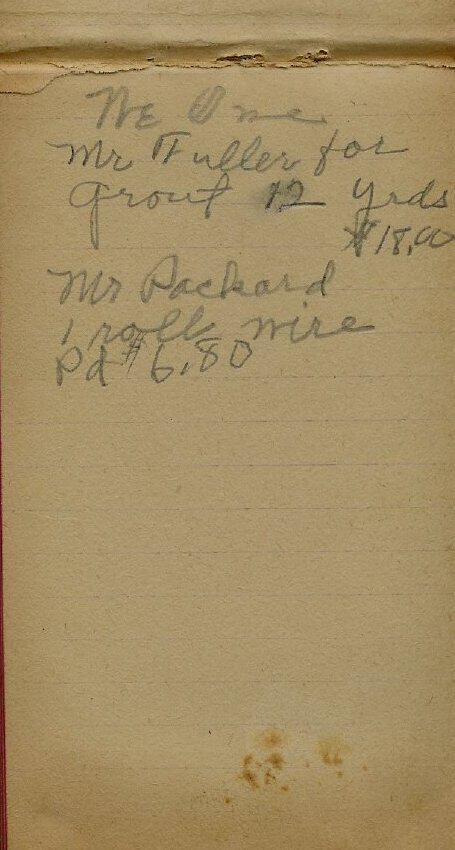 We Owe
Mr Fuller for
Grout 12 Yrds
$18,00
Mr Packard
1 roll wire
Pd $6.80